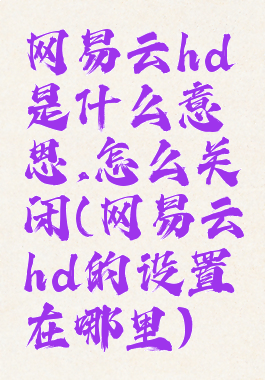 网易云hd
是什么意
思,怎么关
闭(网易云
hd的设置
在哪里)